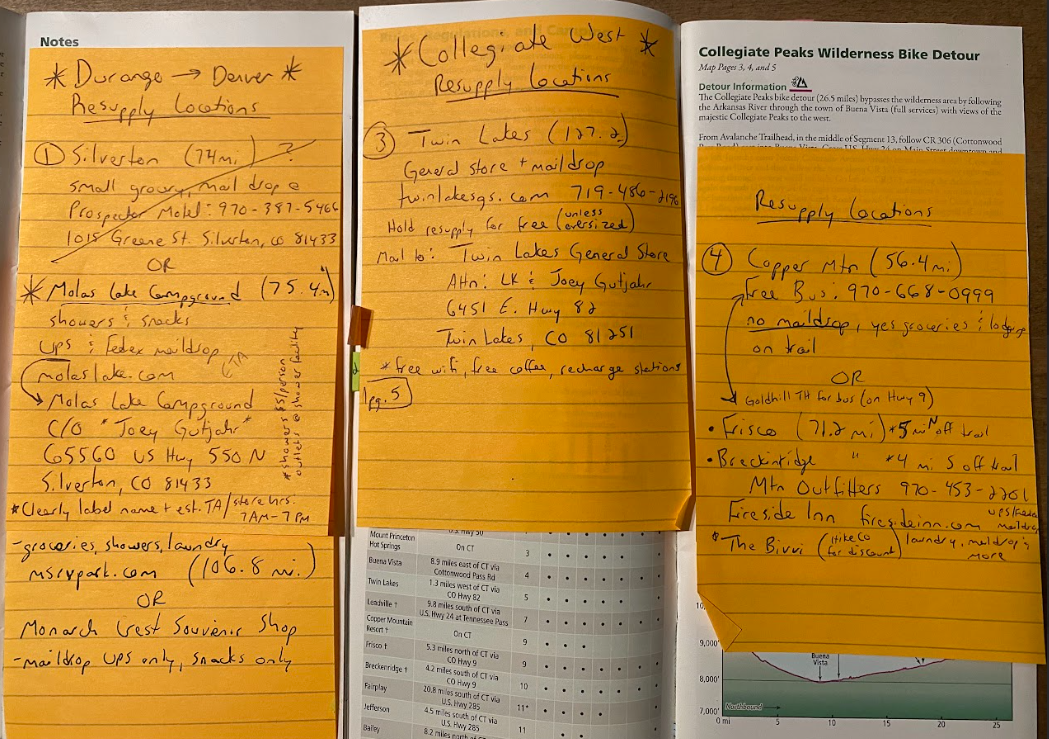 Notes
* Durango → Denver *
Resupply Locations
① Silverton (74mi) ?
small grocery, mail drop @
Prospector Motel: 970-387-5466
1015 Greene St. Silverton, CO 81433
OR
* Molas Lake Campground (75.4mi)
showers & snacks
UPS & Fedex maildrop
molaslake.com
Molas Lake Campground
C/O "Joey Gutjahr"
65560 US Hwy 550 N
Silverton, CO 81433
* showers $5/person
outlets @ shower facility
*Clearly label name + est. TA/store hrs:
7AM-7PM
-groceries, showers, laundry
msrvpark.com (106.8 mi.)
OR
Monarch Crest Souvenir Shop
-maildrop UPS only, snacks only
* Collegiate West *
Resupply Locations
③ Twin Lakes (127.2)
General store + maildrop
twinlakesgs.com 719-486-2196
Hold resupply for free (unless oversized)
Mail to: Twin Lakes General Store
Attn: LK & Joey Gutjahr
6451 E. Hwy 82
Twin Lakes, CO 81251
*free wifi, free coffee, recharge stations
pg. 5
Mount Princeton
Hot Springs On CT 3
Buena Vista 8.9 miles east of CT via
Cottonwood Pass Rd 4
Twin Lakes 1.3 miles west of CT via
CO Hwy 82 5
Leadville † 9.8 miles south of CT via
U.S. Hwy 24 at Tennessee Pass 7
Copper Mountain
Resort † On CT 9
Frisco † 5.3 miles north of CT via
CO Hwy 9 9
Breckenridge † 4.2 miles south of CT via
CO Hwy 9 10
Fairplay 20.8 miles south of CT via
U.S. Hwy 285 11*
Jefferson 4.5 miles south of CT via
U.S. Hwy 285 11
Bailey 8.2 miles north of CT
Collegiate Peaks Wilderness Bike Detour
Map Pages 3, 4, and 5
Detour Information
The Collegiate Peaks bike detour (26.5 miles) bypasses the wilderness area by following
the Arkansas River through the town of Buena Vista (full services) with views of the
majestic Collegiate Peaks to the west.
From Avalanche Trailhead, in the middle of Segment 13, follow CR 306 (Cottonwood
Resupply Locations
④ Copper Mtn (56.4mi)
Free Bus: 970-668-0999
no maildrop, yes groceries & lodging
on trail
OR
Goldhill TH for bus (on Hwy 9)
• Frisco (71.2 mi) *5 mi N off trail
• Breckinridge " *4 mi S off trail
Mtn Outfitters 970-453-2201
Fireside Inn firesideinn.com UPS/Fedex
maildrop
* The Bivvi (Hike CO for discount) laundry, maildrop &
more
9,000'
8,000'
7,000'
Buena
Vista
Northbound
0 mi 5 10 15 20 25